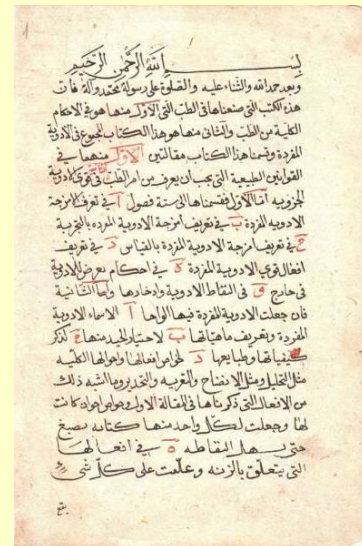 بسم الله الرحمن الرحيم
وبعد حمد الله والثناء عليه والصلوة على رسوله محمد وآله فان
هذه الكتب التى صنعناها فى الطب التى الاول منها هو فى الاحكام
الكلية من الطب والثانى منها هو هذا الكتاب المجموع فى الادوية
المفردة وقسمنا هذا الكتاب مقالتين الاولى منهما فى
القوانين الطبيعية التى يجب ان يعرف من امر الطب فى قوى الادوية
الجزويه اما الاولى فقسمناها الى ستة فصول ا فى تعرف امزجة
الادويه المفردة ب فى تعريف امزجة الادوية المفرده بالتجربة
ج فى تعريف امزجة الادوية المفردة بالقياس د فى تعريف
افعال قوى الادوية المفردة ه فى احكام يعرض للادوية
فى خارج و فى التقاط الادوية وادخارها واما الثانية
فان جعلت الادوية المفردة فيها الواحا ا لاسماء الادوية
المفردة وتعريف ماهياتها ب لاختيار الجيد منها ج لذكر
كيفياتها وطبايعها د لخواص افعالها واحوالها الكليه
مثل التحليل ومثل الانضاج والتغريه والتخدير وما اشبه ذلك
من الافعال التى ذكرناها فى المقالة الاولى وخواص اخوان كانت
لها وجعلت لكل واحد منها كتابه بصبغ
حتى يسهل التقاطه ه فى افعالها
التى يتعلق بالزينه وعلمت على كل شى